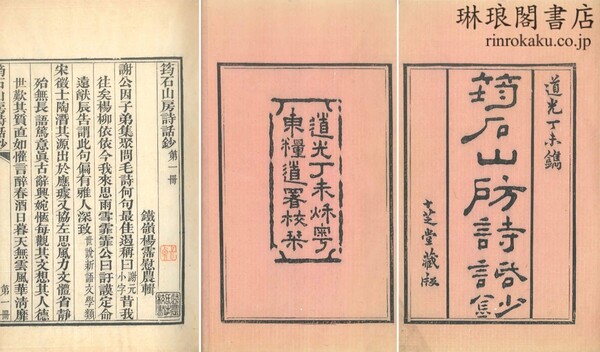 琳琅閣書店
rinrokaku.co.jp
道光丁未鐫
筠石山房詩話鈔
芝堂藏板
道光丁未秌粵
東糧道署校栞
筠石山房詩話鈔 第一冊
鐵嶺楊霈慰農輯
謝公因子弟集聚問毛詩何句最佳遏稱曰謝元小字昔我
往矣楊柳依依今我來思雨雪霏霏公曰訏謨定命
遠猷辰告謂此句偏有雅人深致世說新語文學類
宋徵士陶潛其源出於應璩又協左思風力文體省靜
殆無長語篤意眞古辭興婉愜每觀其文想其人德
世歎其質直如懽言醉春酒日暮天無雲風華清靡
筠石山房詩話鈔 第一冊